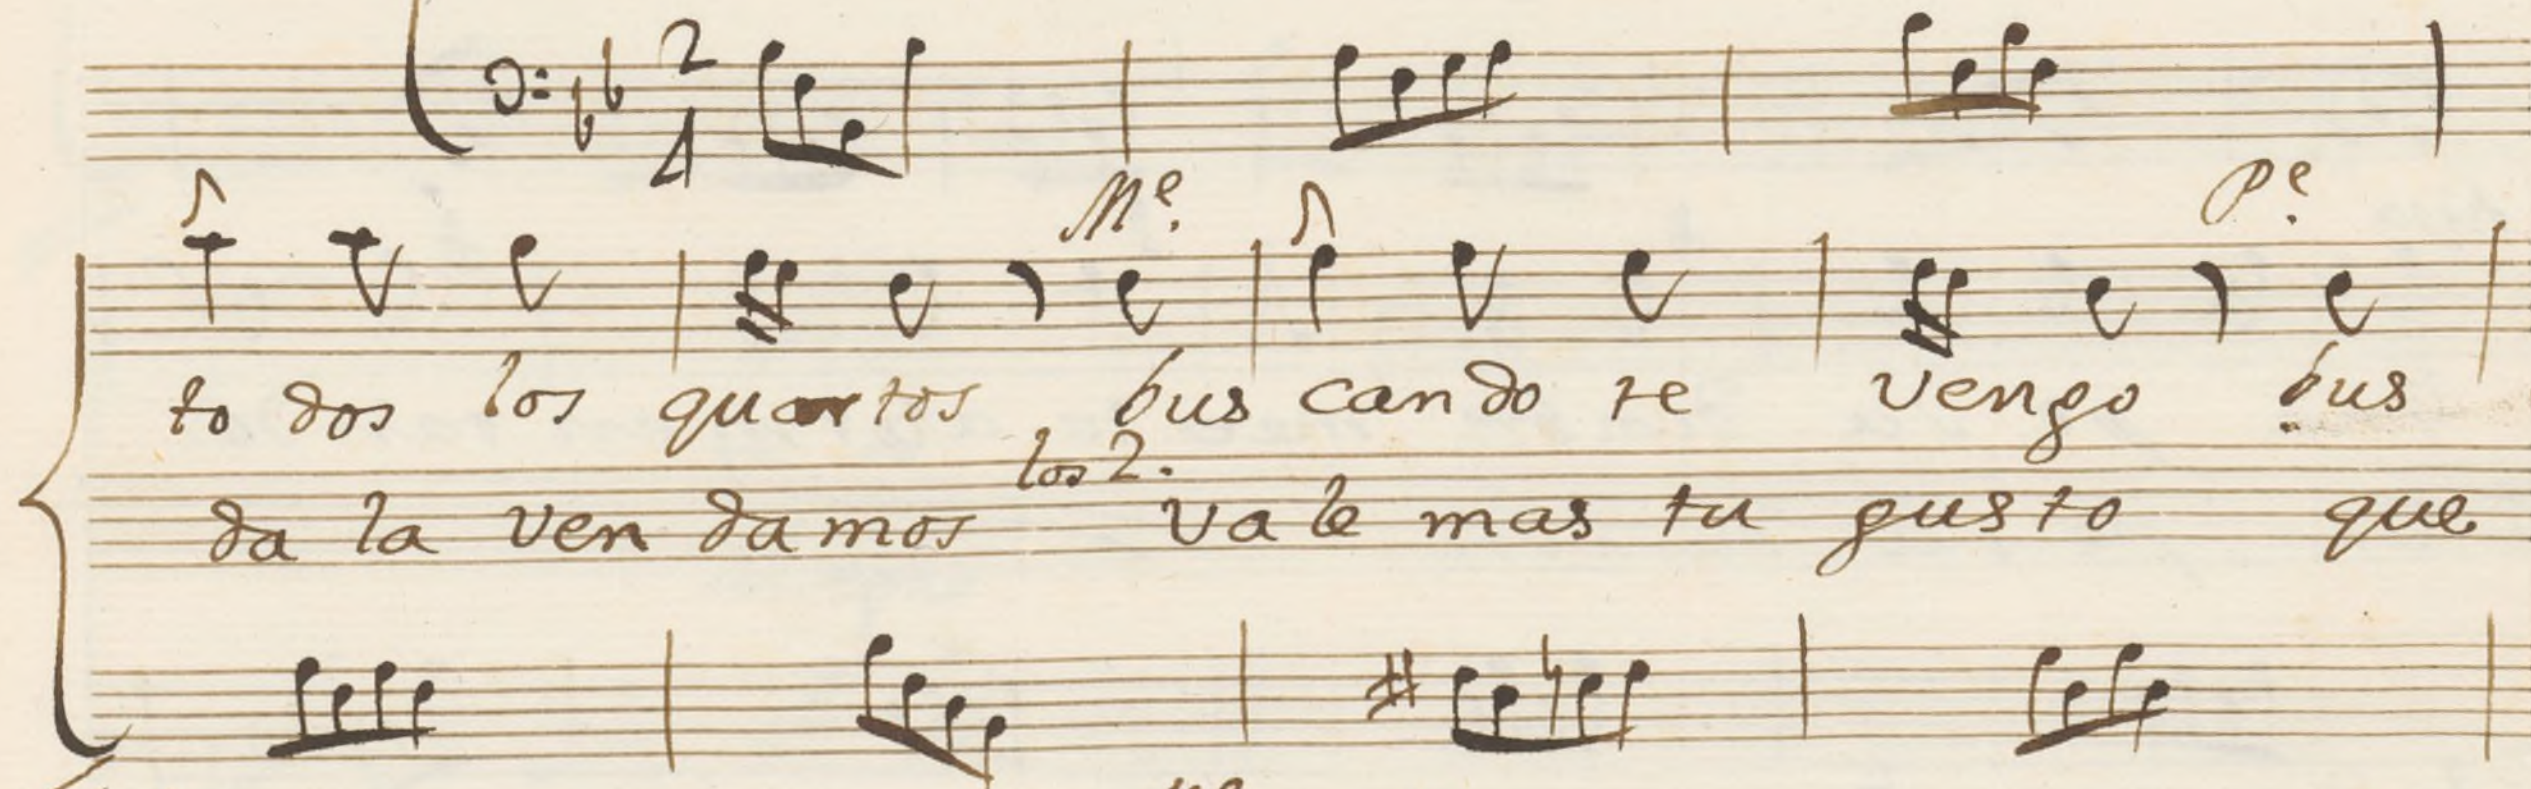 2
4
Mᵉ. Pᵉ.
to dos los quartos bus cando te vengo bus
los 2.
da la ven damos va le mas tu gusto que